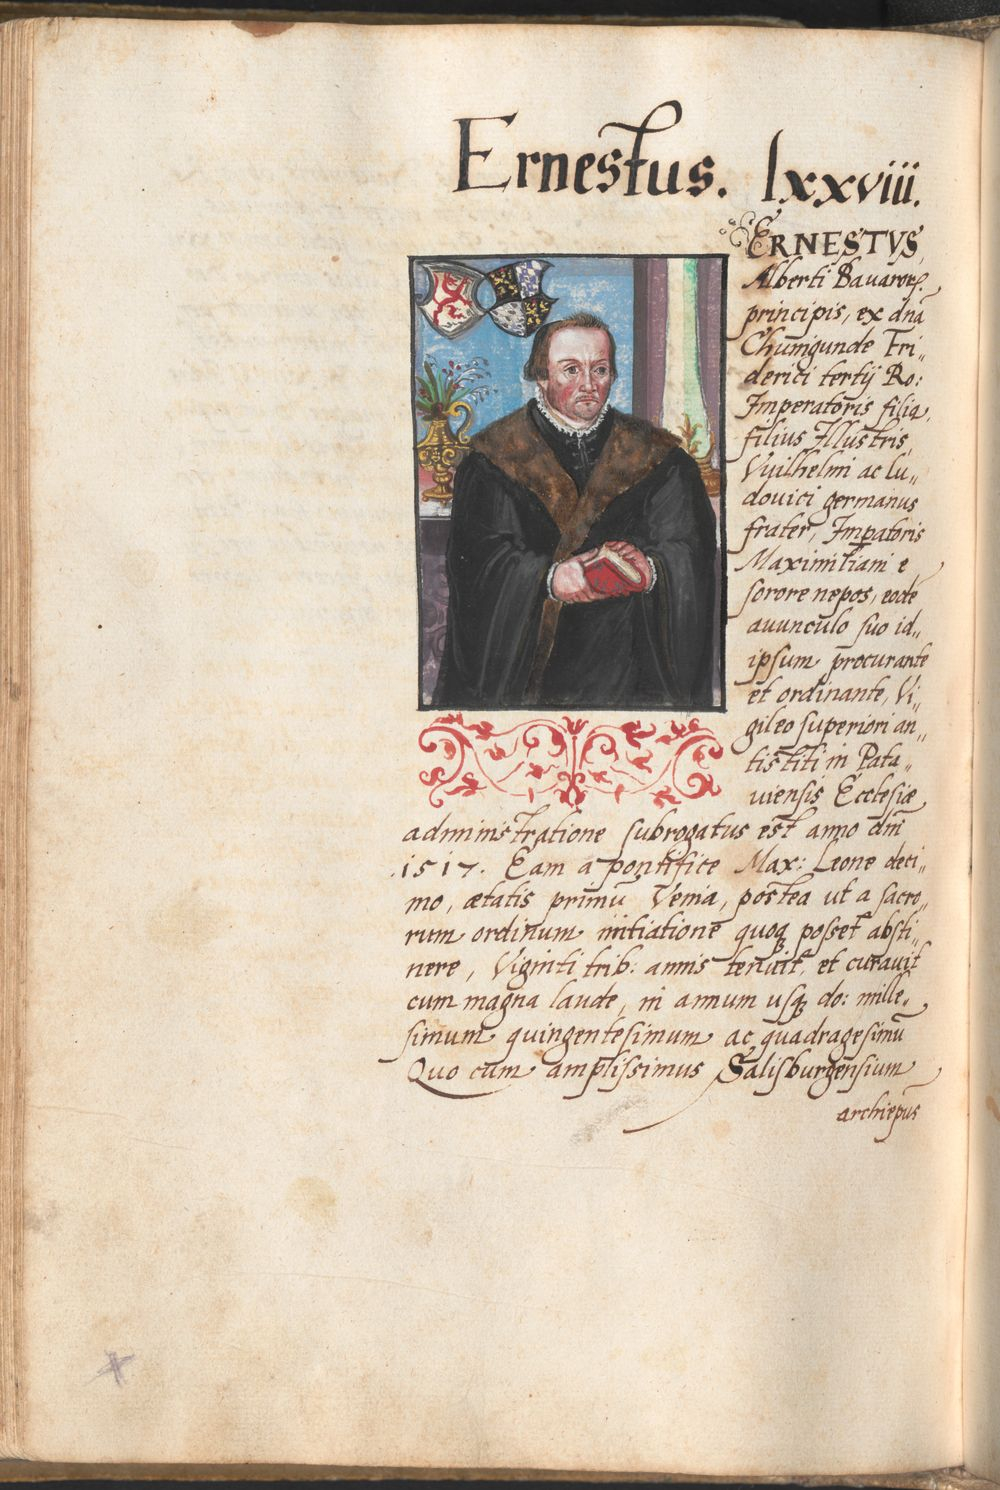 Ernestus. lxxviii.
ERNESTVS,
Alberti Bauarorꝝ.
principis, ex dn̄a
Chunigunde Fri„
derici tertij Ro:
Imperatoris filia,
filius Illustris,
Vuilhelmi ac lu„
douici germanus
frater, Imꝑatoris
Maximiliani e
sorore nepos, eodē
auunculo suo id„
ipsum procurante
et ordinante, Vi„
gileo superiori an„
tistiti in Pata„
uiensis Ecclesiæ
administratione subrogatus est anno dn̄i
.1517. Eam a pontifice Max: Leone deci„
mo, ætatis primū Venia, postea ut a sacro„
rum ordinum initiatione quoqꝫ posset absti„
nere, Viginti trib: annis tenuit, et curauit
cum magna laude, in annum usqꝫ do: mille„
simum quingentesimum ac quadragesimū
Quo cum amplissimus Salisburgensium
archiepūs